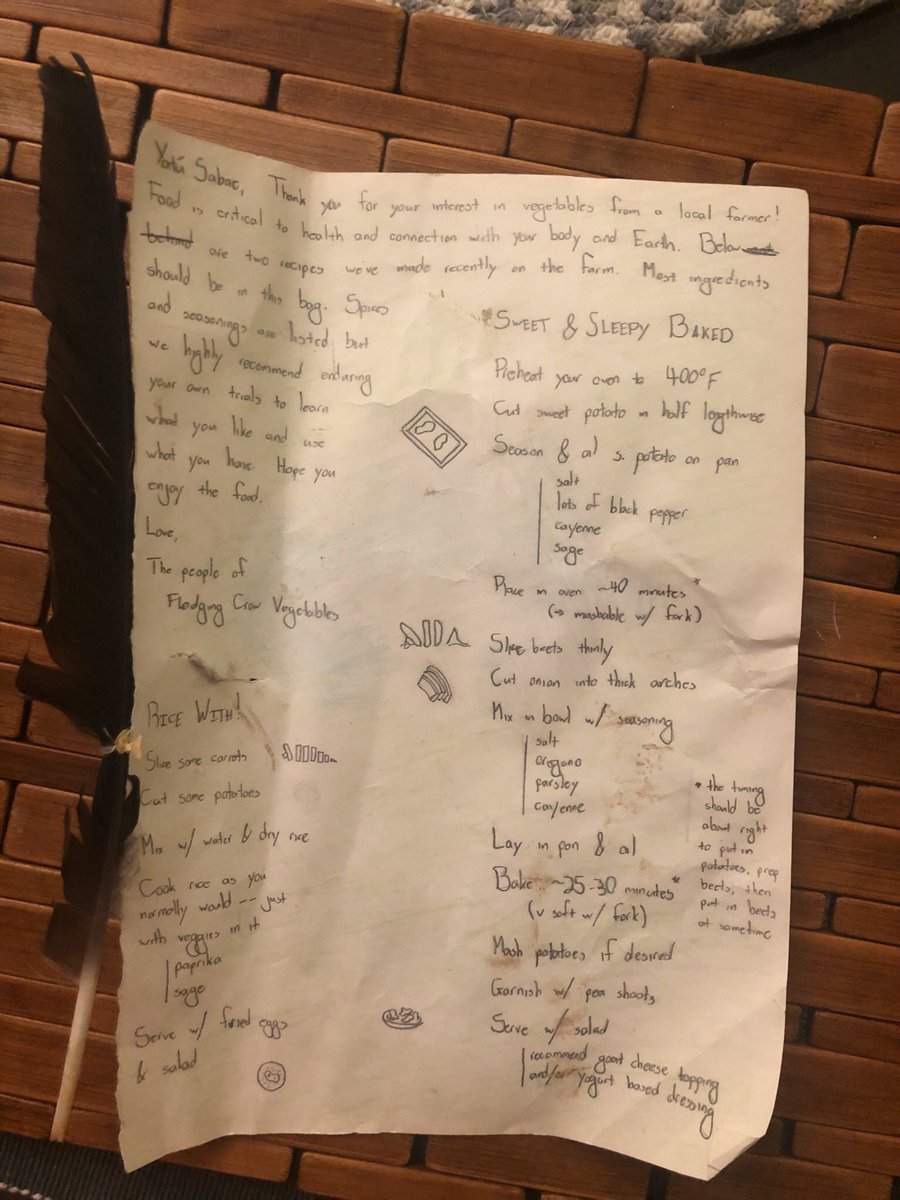 Sabac, Thank you for your interest in vegetables from a local farmer!
Food is critical to health and connection with your body and Earth. Below
behind are two recipes we've made recently on the farm. Most ingredients
should be in this bag. Spices
and seasonings are listed but
we highly recommend enduring
your own trials to learn
what you like and use
what you have. Hope you
enjoy the food.
Love,
The people of
Fledging Crow Vegetables
RICE WITH!
Slice some carrots
Cut some potatoes
Mix w/ water & dry rice
Cook rice as you
normally would -- just
with veggies in it
paprika
sage
Serve w/ fried eggs
& salad
SWEET & SLEEPY BAKED
Preheat your oven to 400°F
Cut sweet potato in half lengthwise
Season & oil s. potato on pan
salt
lots of black pepper
cayenne
sage
Place in oven ~40 minutes*
(→ mashable w/ fork)
Slice beets thinly
Cut onion into thick arches
Mix in bowl w/ seasoning
salt
oregano
parsley
cayenne
Lay in pan & oil
Bake ~25-30 minutes*
(v soft w/ fork)
Mash potatoes if desired
Garnish w/ pea shoots
Serve w/ salad
recommend goat cheese topping
and/or yogurt based dressing
* the timing
should be
about right
to put in
potatoes, prep
beets, then
put in beets
at sametime